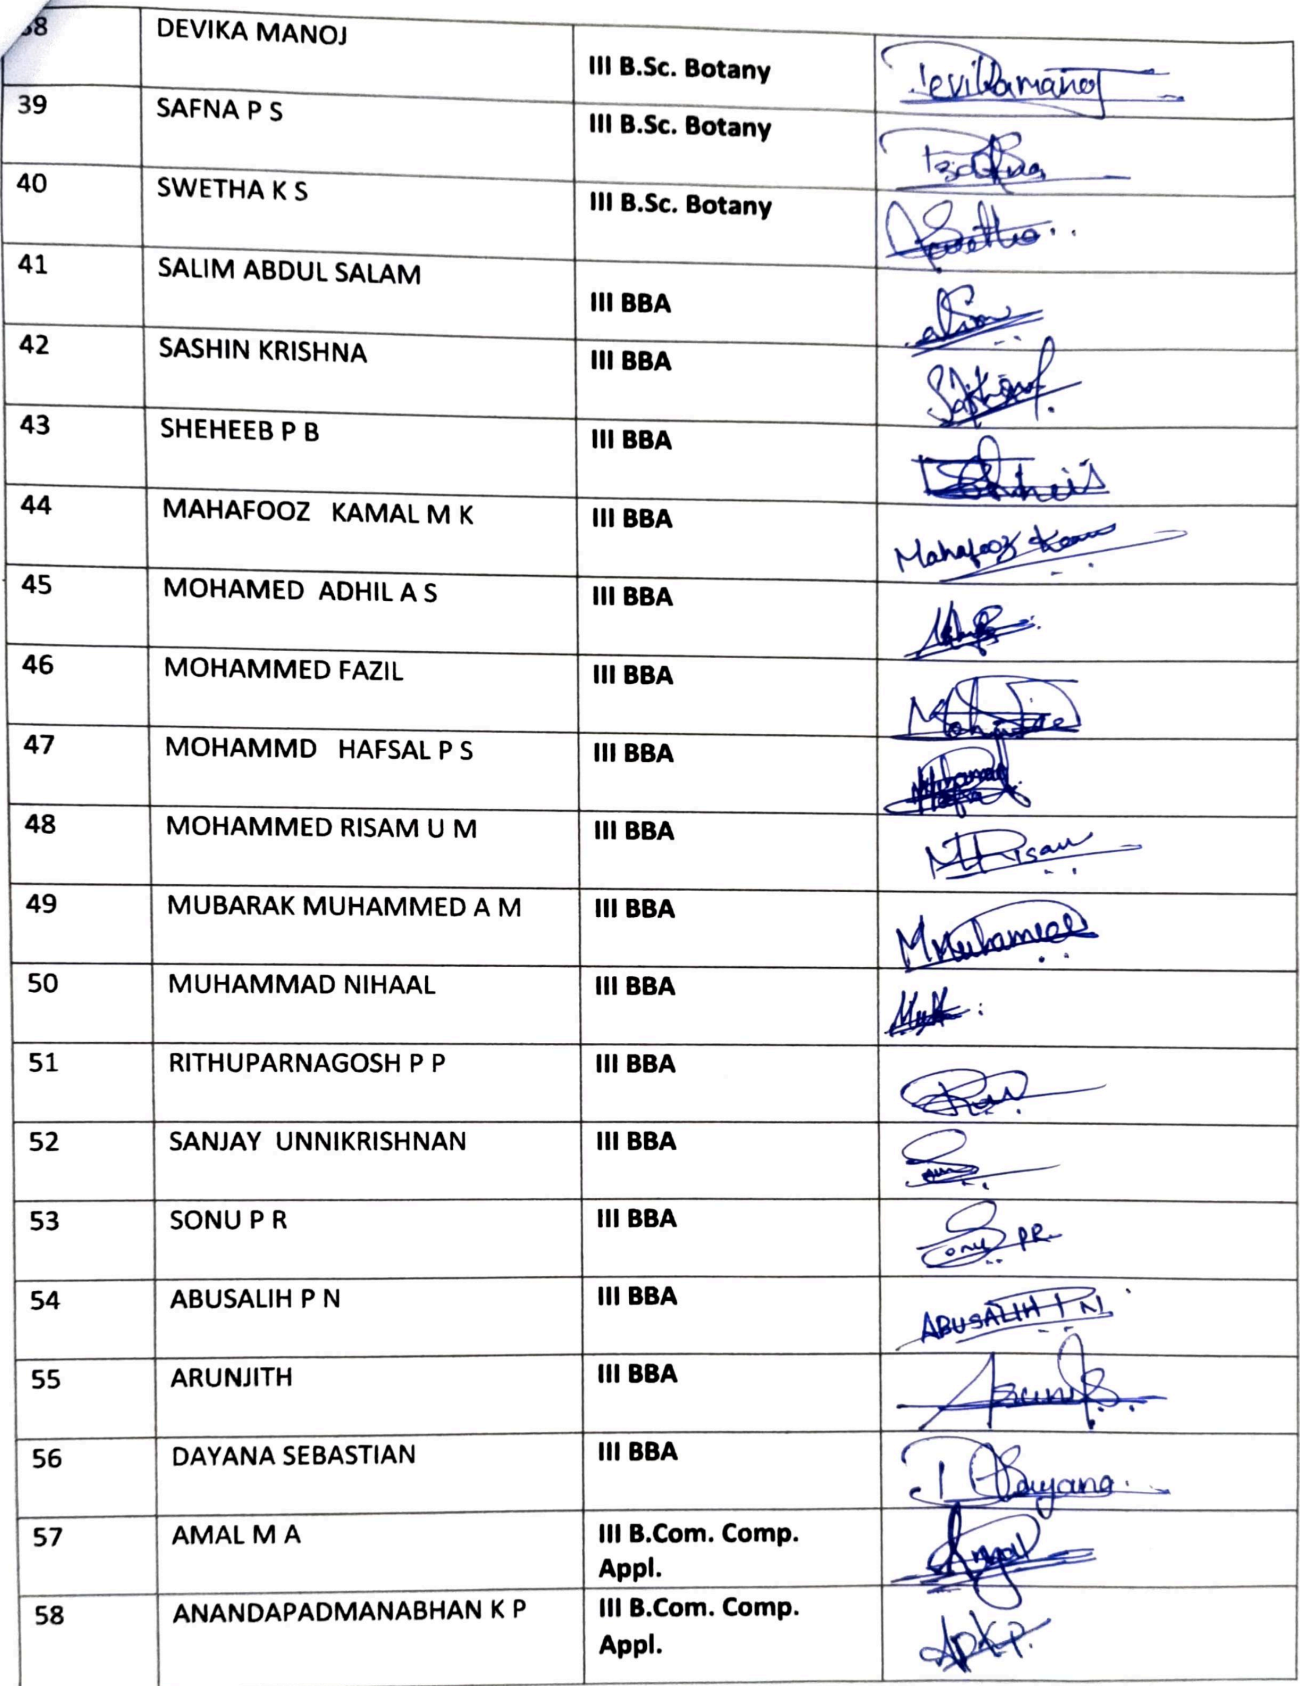 38 DEVIKA MANOJ III B.Sc. Botany Devikamanoj
39 SAFNA P S III B.Sc. Botany
40 SWETHA K S III B.Sc. Botany
41 SALIM ABDUL SALAM III BBA
42 SASHIN KRISHNA III BBA
43 SHEHEEB P B III BBA
44 MAHAFOOZ KAMAL M K III BBA Mahafooz
45 MOHAMED ADHIL A S III BBA
46 MOHAMMED FAZIL III BBA
47 MOHAMMD HAFSAL P S III BBA
48 MOHAMMED RISAM U M III BBA
49 MUBARAK MUHAMMED A M III BBA
50 MUHAMMAD NIHAAL III BBA
51 RITHUPARNAGOSH P P III BBA
52 SANJAY UNNIKRISHNAN III BBA
53 SONU P R III BBA Sonu PR
54 ABUSALIH P N III BBA ABUSALIH P N
55 ARUNJITH III BBA
56 DAYANA SEBASTIAN III BBA Dayana
57 AMAL M A III B.Com. Comp.
Appl.
58 ANANDAPADMANABHAN K P III B.Com. Comp.
Appl. APKP.